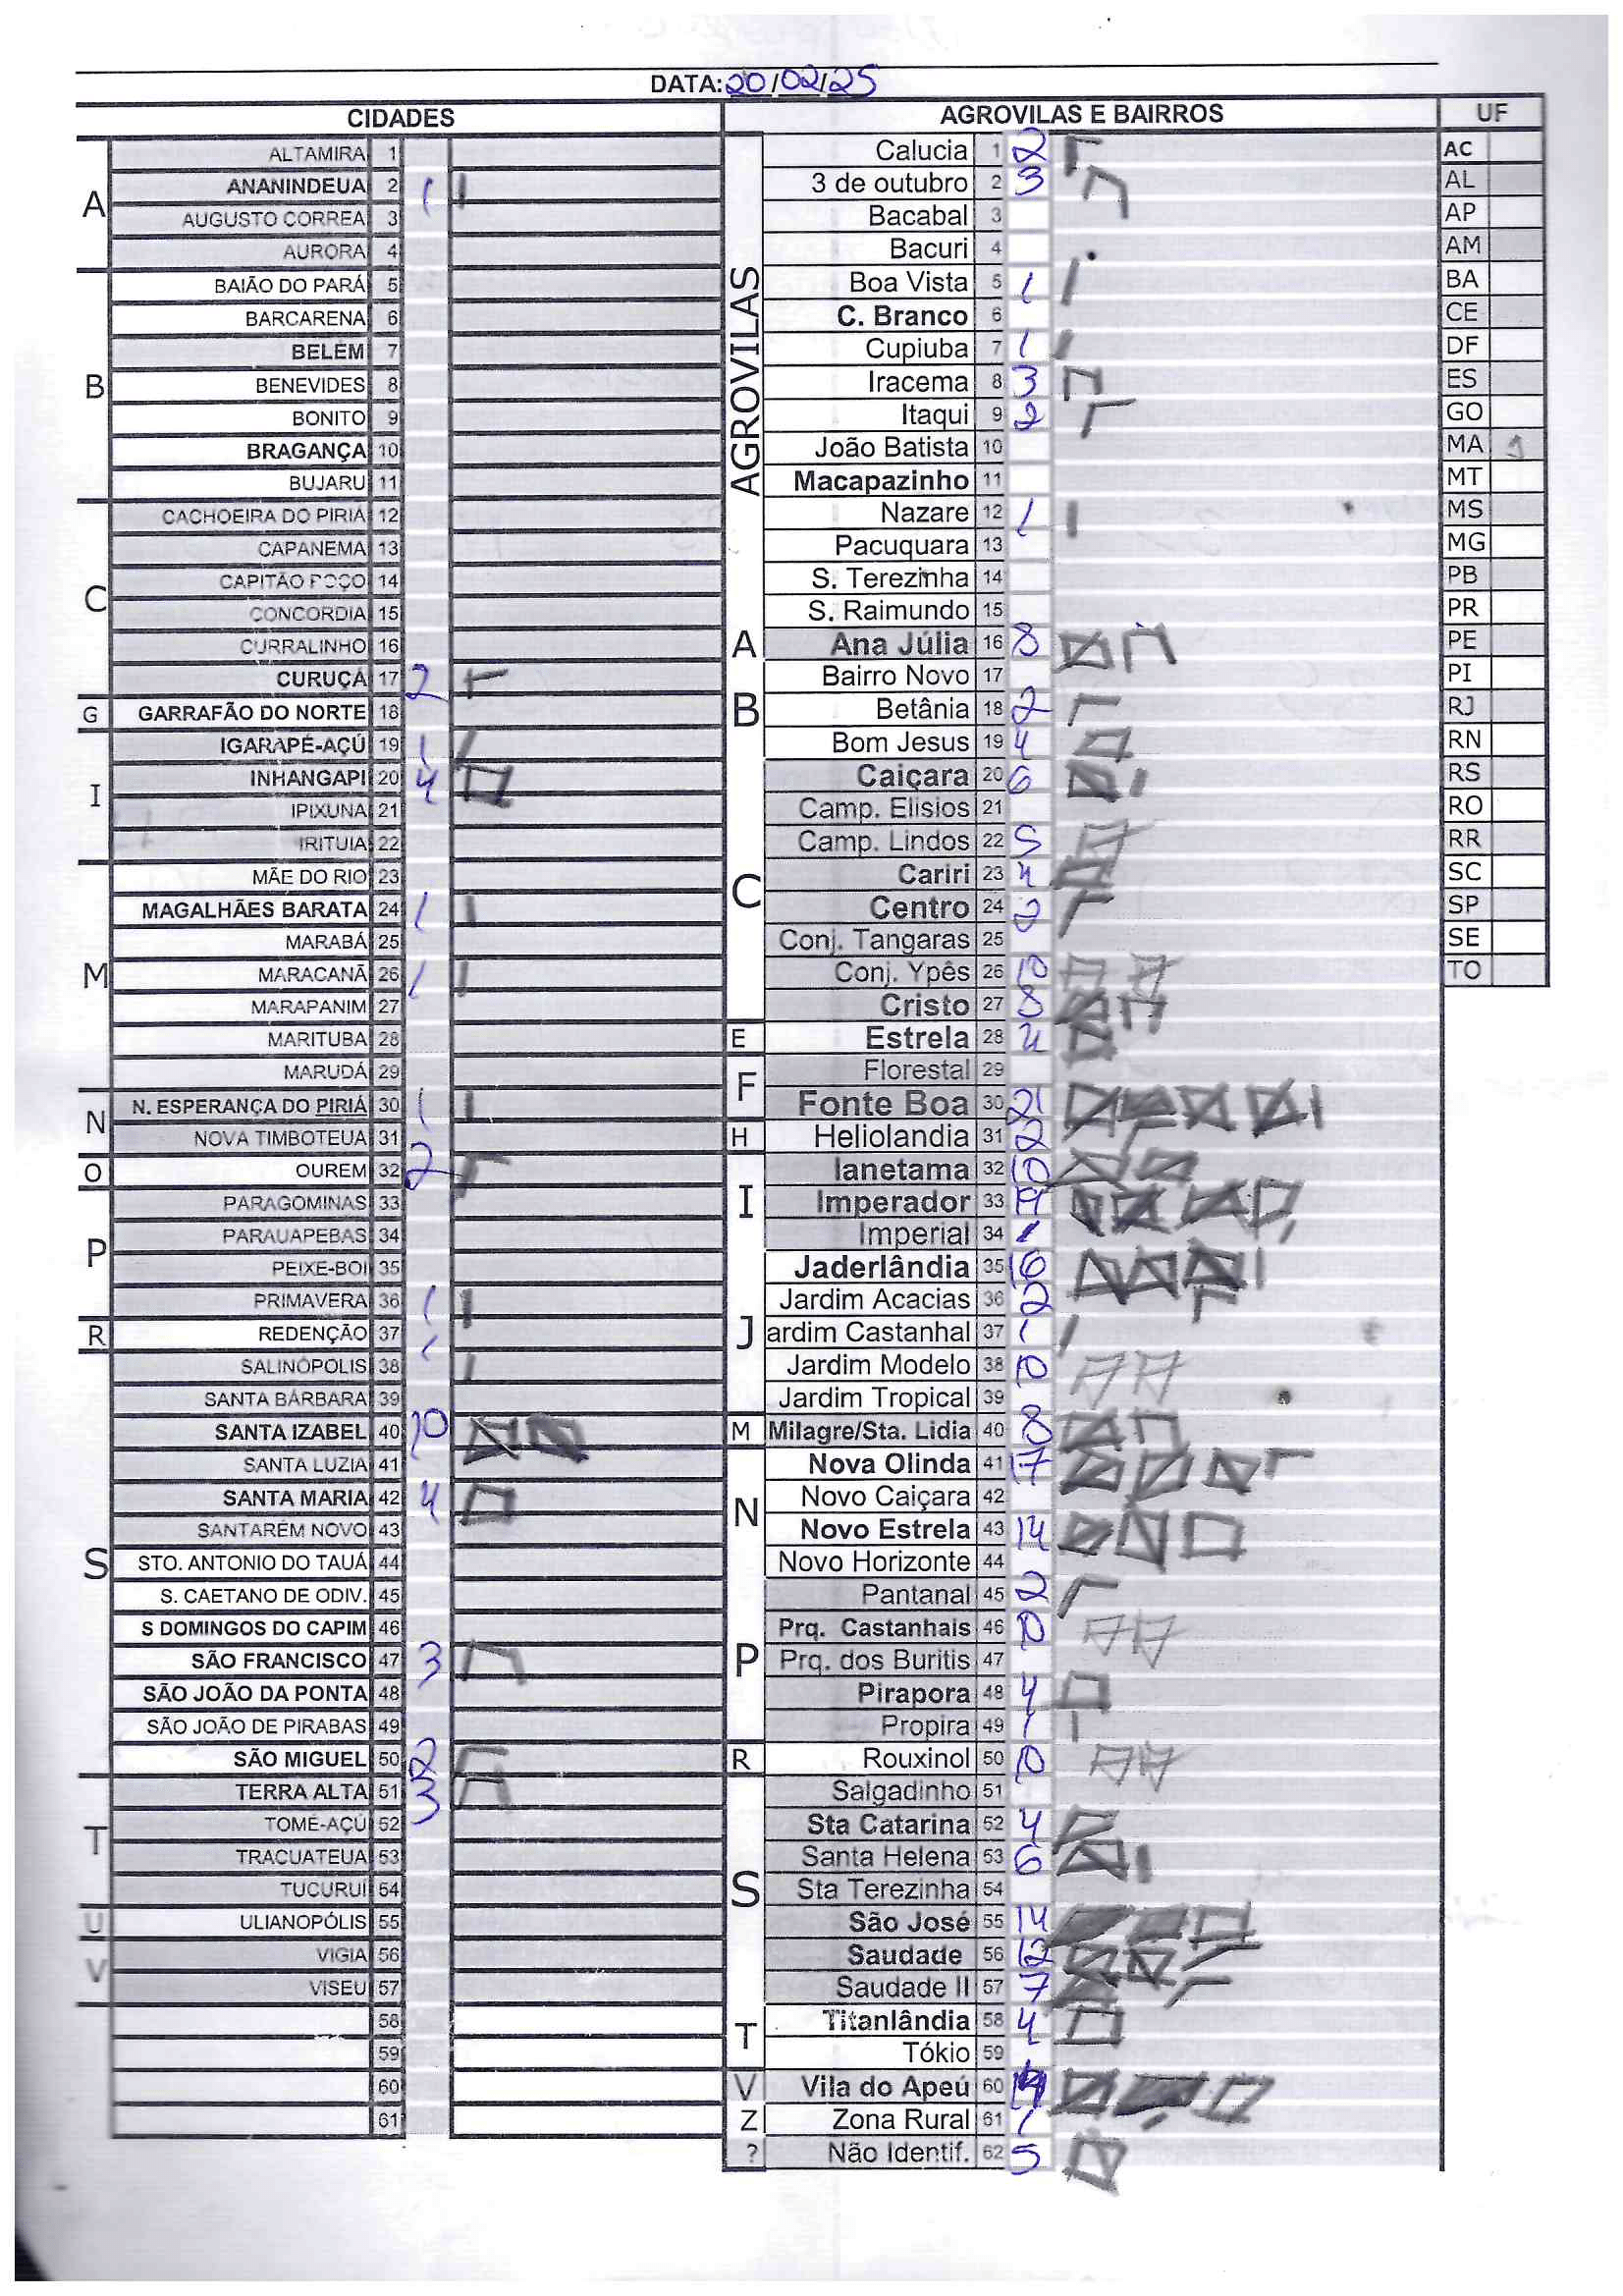 DATA: 20/02/25
CIDADES
A
ALTAMIRA 1
ANANINDEUA 2 1
AUGUSTO CORREA 3
AURORA 4
B
BAIÃO DO PARÁ 5
BARCARENA 6
BELÉM 7
BENEVIDES 8
BONITO 9
BRAGANÇA 10
BUJARU 11
C
CACHOEIRA DO PIRIÁ 12
CAPANEMA 13
CAPITÃO POÇO 14
CONCORDIA 15
CURRALINHO 16
CURUÇÁ 17 2
G
GARRAFÃO DO NORTE 18
I
IGARAPÉ-AÇÚ 19 1
INHANGAPI 20 4
IPIXUNA 21
IRITUIA 22
M
MÃE DO RIO 23
MAGALHÃES BARATA 24 1
MARABÁ 25
MARACANÃ 26 1
MARAPANIM 27
MARITUBA 28
MARUDÁ 29
N
N. ESPERANÇA DO PIRIÁ 30 1
NOVA TIMBOTEUA 31
O
OUREM 32 2
P
PARAGOMINAS 33
PARAUAPEBAS 34
PEIXE-BOI 35
PRIMAVERA 36 1
R
REDENÇÃO 37
S
SALINÓPOLIS 38 1
SANTA BÁRBARA 39
SANTA IZABEL 40 10
SANTA LUZIA 41
SANTA MARIA 42 4
SANTARÉM NOVO 43
STO. ANTONIO DO TAUÁ 44
S. CAETANO DE ODIV. 45
S DOMINGOS DO CAPIM 46
SÃO FRANCISCO 47 3
SÃO JOÃO DA PONTA 48
SÃO JOÃO DE PIRABAS 49
SÃO MIGUEL 50 2
T
TERRA ALTA 51 3
TOMÉ-AÇÚ 52
TRACUATEUA 53
TUCURUI 54
U
ULIANOPÓLIS 55
V
VIGIA 56
VISEU 57
58
59
60
61
AGROVILAS E BAIRROS
AGROVILAS
Calucia 1 2
3 de outubro 2 3
Bacabal 3
Bacuri 4
Boa Vista 5 1
C. Branco 6
Cupiuba 7 1
Iracema 8 3
Itaqui 9 2
João Batista 10
Macapazinho 11
Nazare 12 1
Pacuquara 13
S. Terezinha 14
S. Raimundo 15
A
Ana Júlia 16 8
B
Bairro Novo 17
Betânia 18 2
Bom Jesus 19 4
C
Caiçara 20 6
Camp. Elisios 21
Camp. Lindos 22 5
Cariri 23 4
Centro 24 2
Conj. Tangaras 25
Conj. Ypês 26 10
Cristo 27 8
E
Estrela 28 4
F
Florestal 29
Fonte Boa 30 21
H
Heliolandia 31 2
I
Ianetama 32 10
Imperador 33 19
Imperial 34 1
J
Jaderlândia 35 16
Jardim Acacias 36 2
ardim Castanhal 37 1
Jardim Modelo 38 10
Jardim Tropical 39
M
Milagre/Sta. Lidia 40 8
N
Nova Olinda 41 17
Novo Caiçara 42
Novo Estrela 43 14
Novo Horizonte 44
P
Pantanal 45 2
Prq. Castanhais 46 10
Prq. dos Buritis 47
Pirapora 48 4
Propira 49 1
R
Rouxinol 50 10
S
Salgadinho 51
Sta Catarina 52 4
Santa Helena 53 6
Sta Terezinha 54
São José 55 14
Saudade 56 12
Saudade II 57 7
T
Titanlândia 58 4
Tókio 59
V
Vila do Apeú 60 14
Z
Zona Rural 61 1
?
Não Identif. 62 5
UF
AC
AL
AP
AM
BA
CE
DF
ES
GO
MA 1
MT
MS
MG
PB
PR
PE
PI
RJ
RN
RS
RO
RR
SC
SP
SE
TO